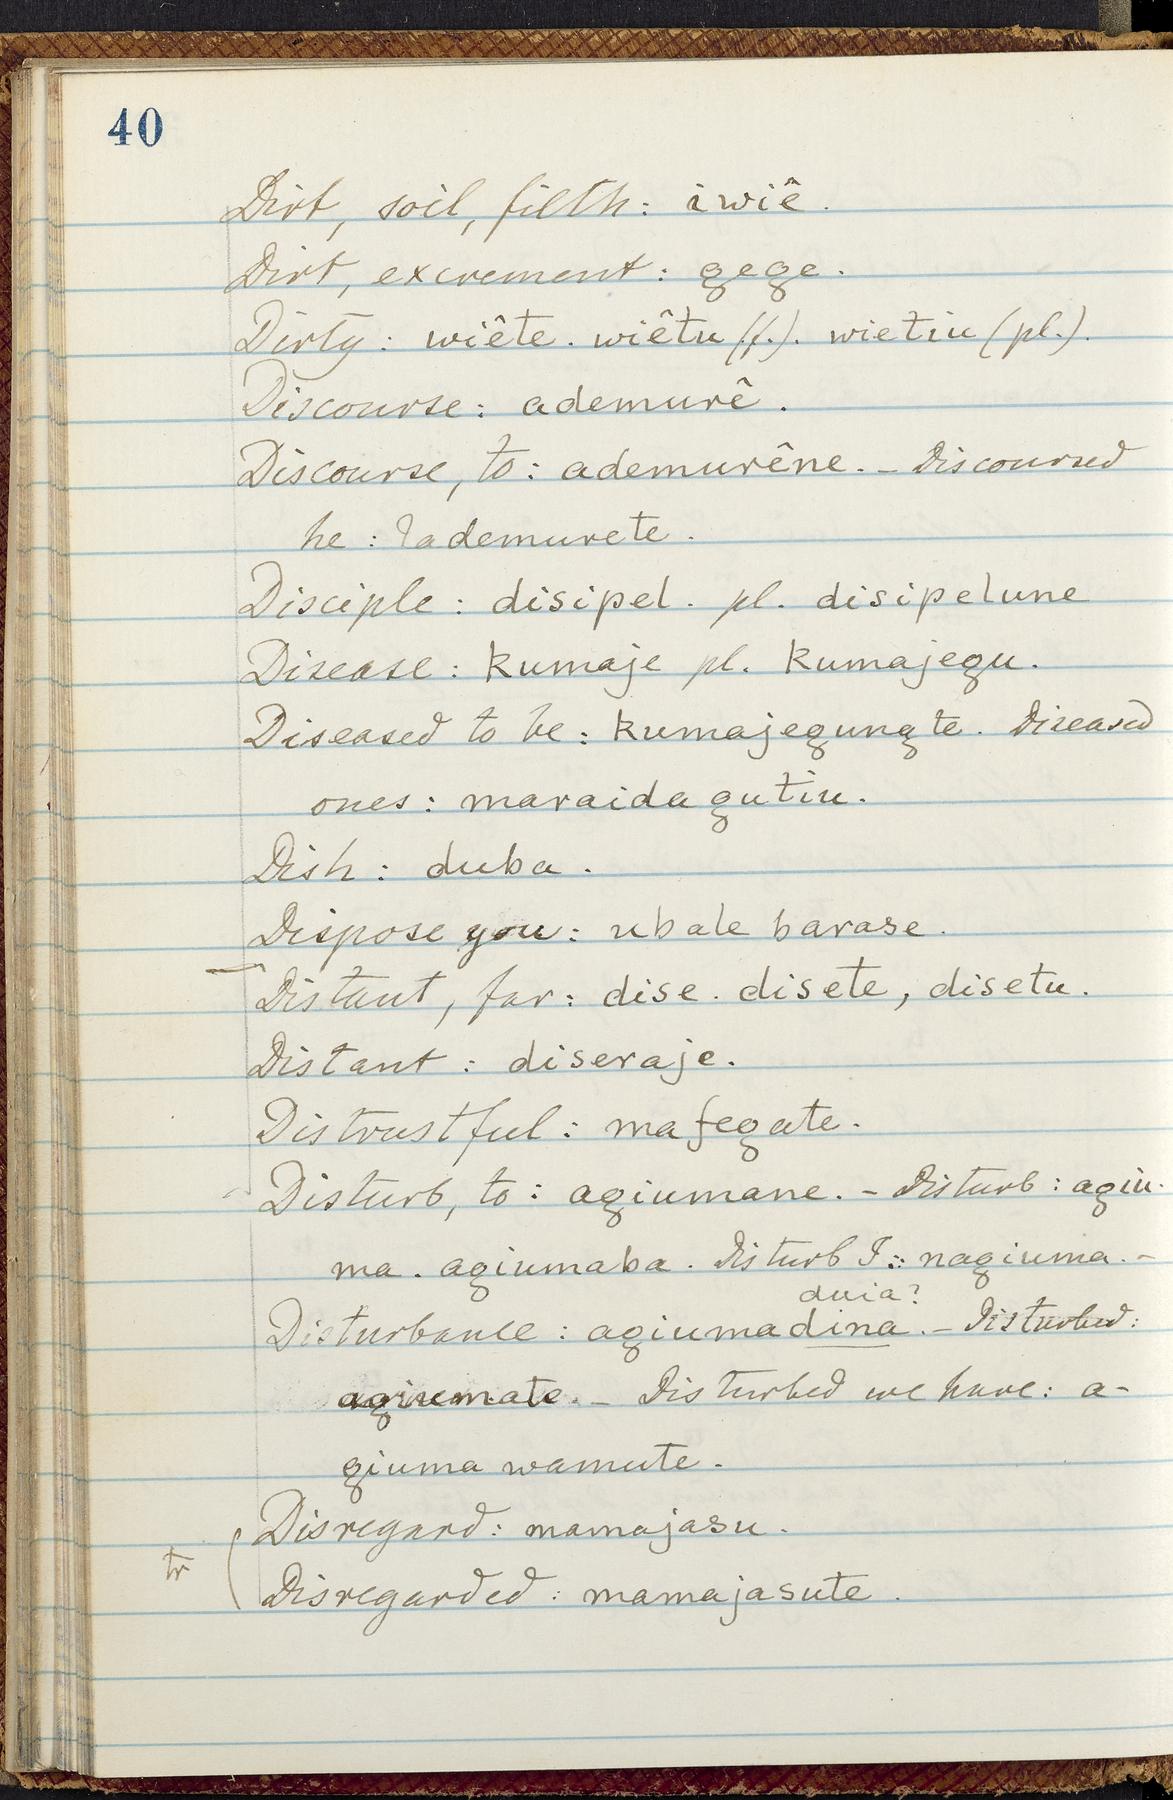 40
Dirt, soil, filth: iwiê.
Dirt, excrement: gege.
Dirty: wiête. wiêtu (f.). wietiu (pl.).
Discourse: ademurê.
Discourse, to: ademurêne. – Discoursed
he: lademurete.
Disciple: disipel. pl. disipelune
Disease: kumaje pl. kumajegu.
Diseased to be: kumajegungte. Diseased
ones: maraidagutiu.
Dish: duba.
Dispose you: ubale barase.
Distant, far: dise. disete, disetu.
Distant: diseraje.
Distrustful: mafegate.
Disturb, to: agiumane. – Disturb: agiu-
ma. agiumaba. Disturb I: nagiuma. –
duia?
Disturbance: agiumadina. – Disturbed:
agiumate. – Disturbed we have: a-
giuma wamute.
Disregard: mamajasu.
tr
Disregarded: mamajasute.